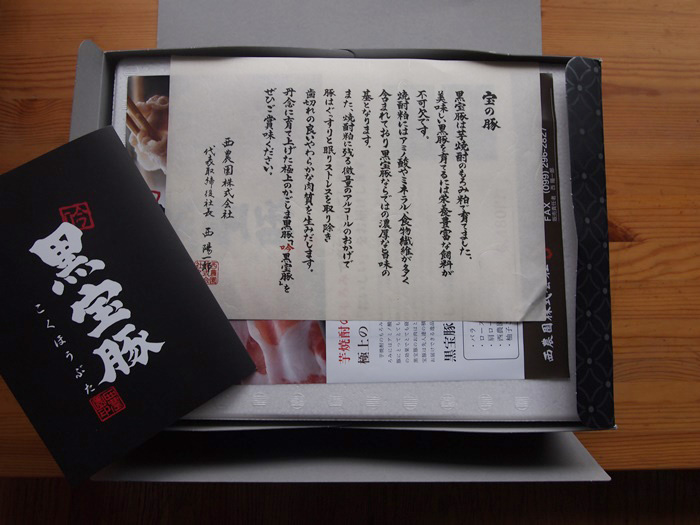 宝の豚
黒宝豚は芋焼酎のもろみ粕で育てました。
美味しい黒豚を育てるには栄養豊富な飼料が
不可欠です。
焼酎粕にはアミノ酸やミネラル、食物繊維が多く
含まれており黒宝豚ならではの濃厚な旨味の
基となります。
また、焼酎粕に残る微量のアルコールのおかげで
豚はぐっすりと眠りストレスを取り除き
歯切れの良いやわらかな肉質を生みだします。
丹念に育て上げた極上のかごしま黒豚「吟 黒宝豚」を
ぜひご賞味ください。
西農園株式会社
代表取締役社長 西 陽一郎
吟
黒宝豚
こくほうぶた
FAX (099)
西農園株式会社
黒宝豚
極上の
芋焼酎の
・バラ
・ロー
・肩ロ
・西農
・柚子